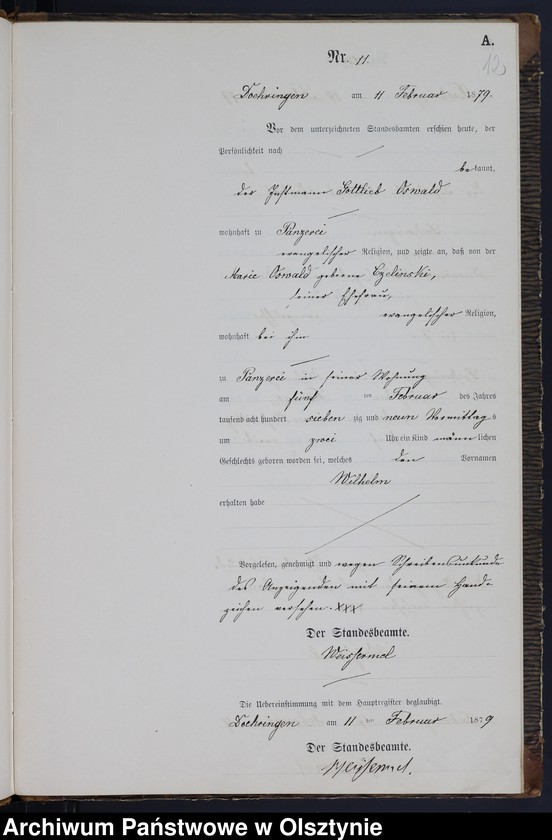 A.
12
Nr. 11
Doehringen am 11 Februar 1879.
Vor dem unterzeichneten Standesbamten erschien heute, der
Persönlichkeit nach
bekannt,
der Instmann Gottlieb Oswald
wohnhaft zu Panzerei
evangelischer Religion, und zeigte an, daß von der
Marie Oswald geborne Czelinski,
seiner Ehefrau,
evangelischer Religion,
wohnhaft bei ihm
zu Panzerei in seiner Wohnung
am fünf ten Februar des Jahres
tausend acht hundert sieben zig und neun Vormittags
um zwei Uhr ein Kind männlichen
Geschlechts geboren worden sei, welches den Vornamen
Wilhelm
erhalten habe
Vorgelesen, genehmigt und wegen Schreibensunkunde
des Anzeigenden mit seinem Hand-
zeichen versehen. XXX
Der Standesbeamte.
Weissermel
Die Uebereinstimmung mit dem Hauptregister beglaubigt.
Doehringen am 11 ten Februar 1879
Der Standesbeamte.
Weissermel.
Archiwum Państwowe w Olsztynie